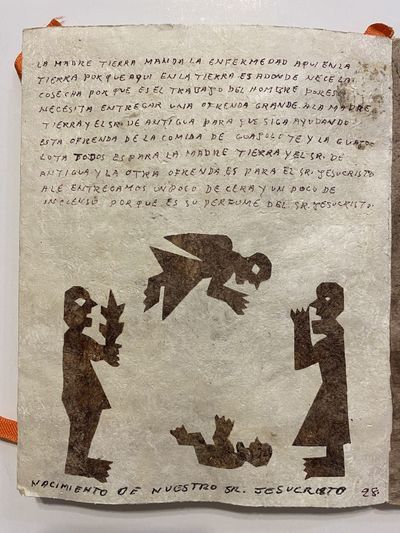 LA MADRE TIERRA MANDA LA ENFERMEDAD AQUI EN LA
TIERRA PORQUE AQUI EN LA TIERRA ES ADONDE NECE LA
COSECHA POR QUE ES EL TRABAJO DEL HOMBRE POR ESO
NECESITA ENTREGAR UNA OFRENDA GRANDE A LA MADRE
TIERRA Y EL SR. DE ANTIGUA PARA QUE SIGA AYUDANDO
ESTA OFRENDA DE LA COMIDA DE GUAJOLOTE Y LA
LOTA TODOS ES PARA LA MADRE TIERRA Y EL SR. DE
ANTIGUA Y LA OTRA OFRENDA ES PARA EL SR. JESUCRISTO
ALE ENTREGAMOS UN POCO DE CERA Y UN POCO DE
INCIENSO PORQUE ES SU PERFUME DEL SR. JESUCRISTO.
NACIMIENTO DE NUESTRO SR. JESUCRISTO 28